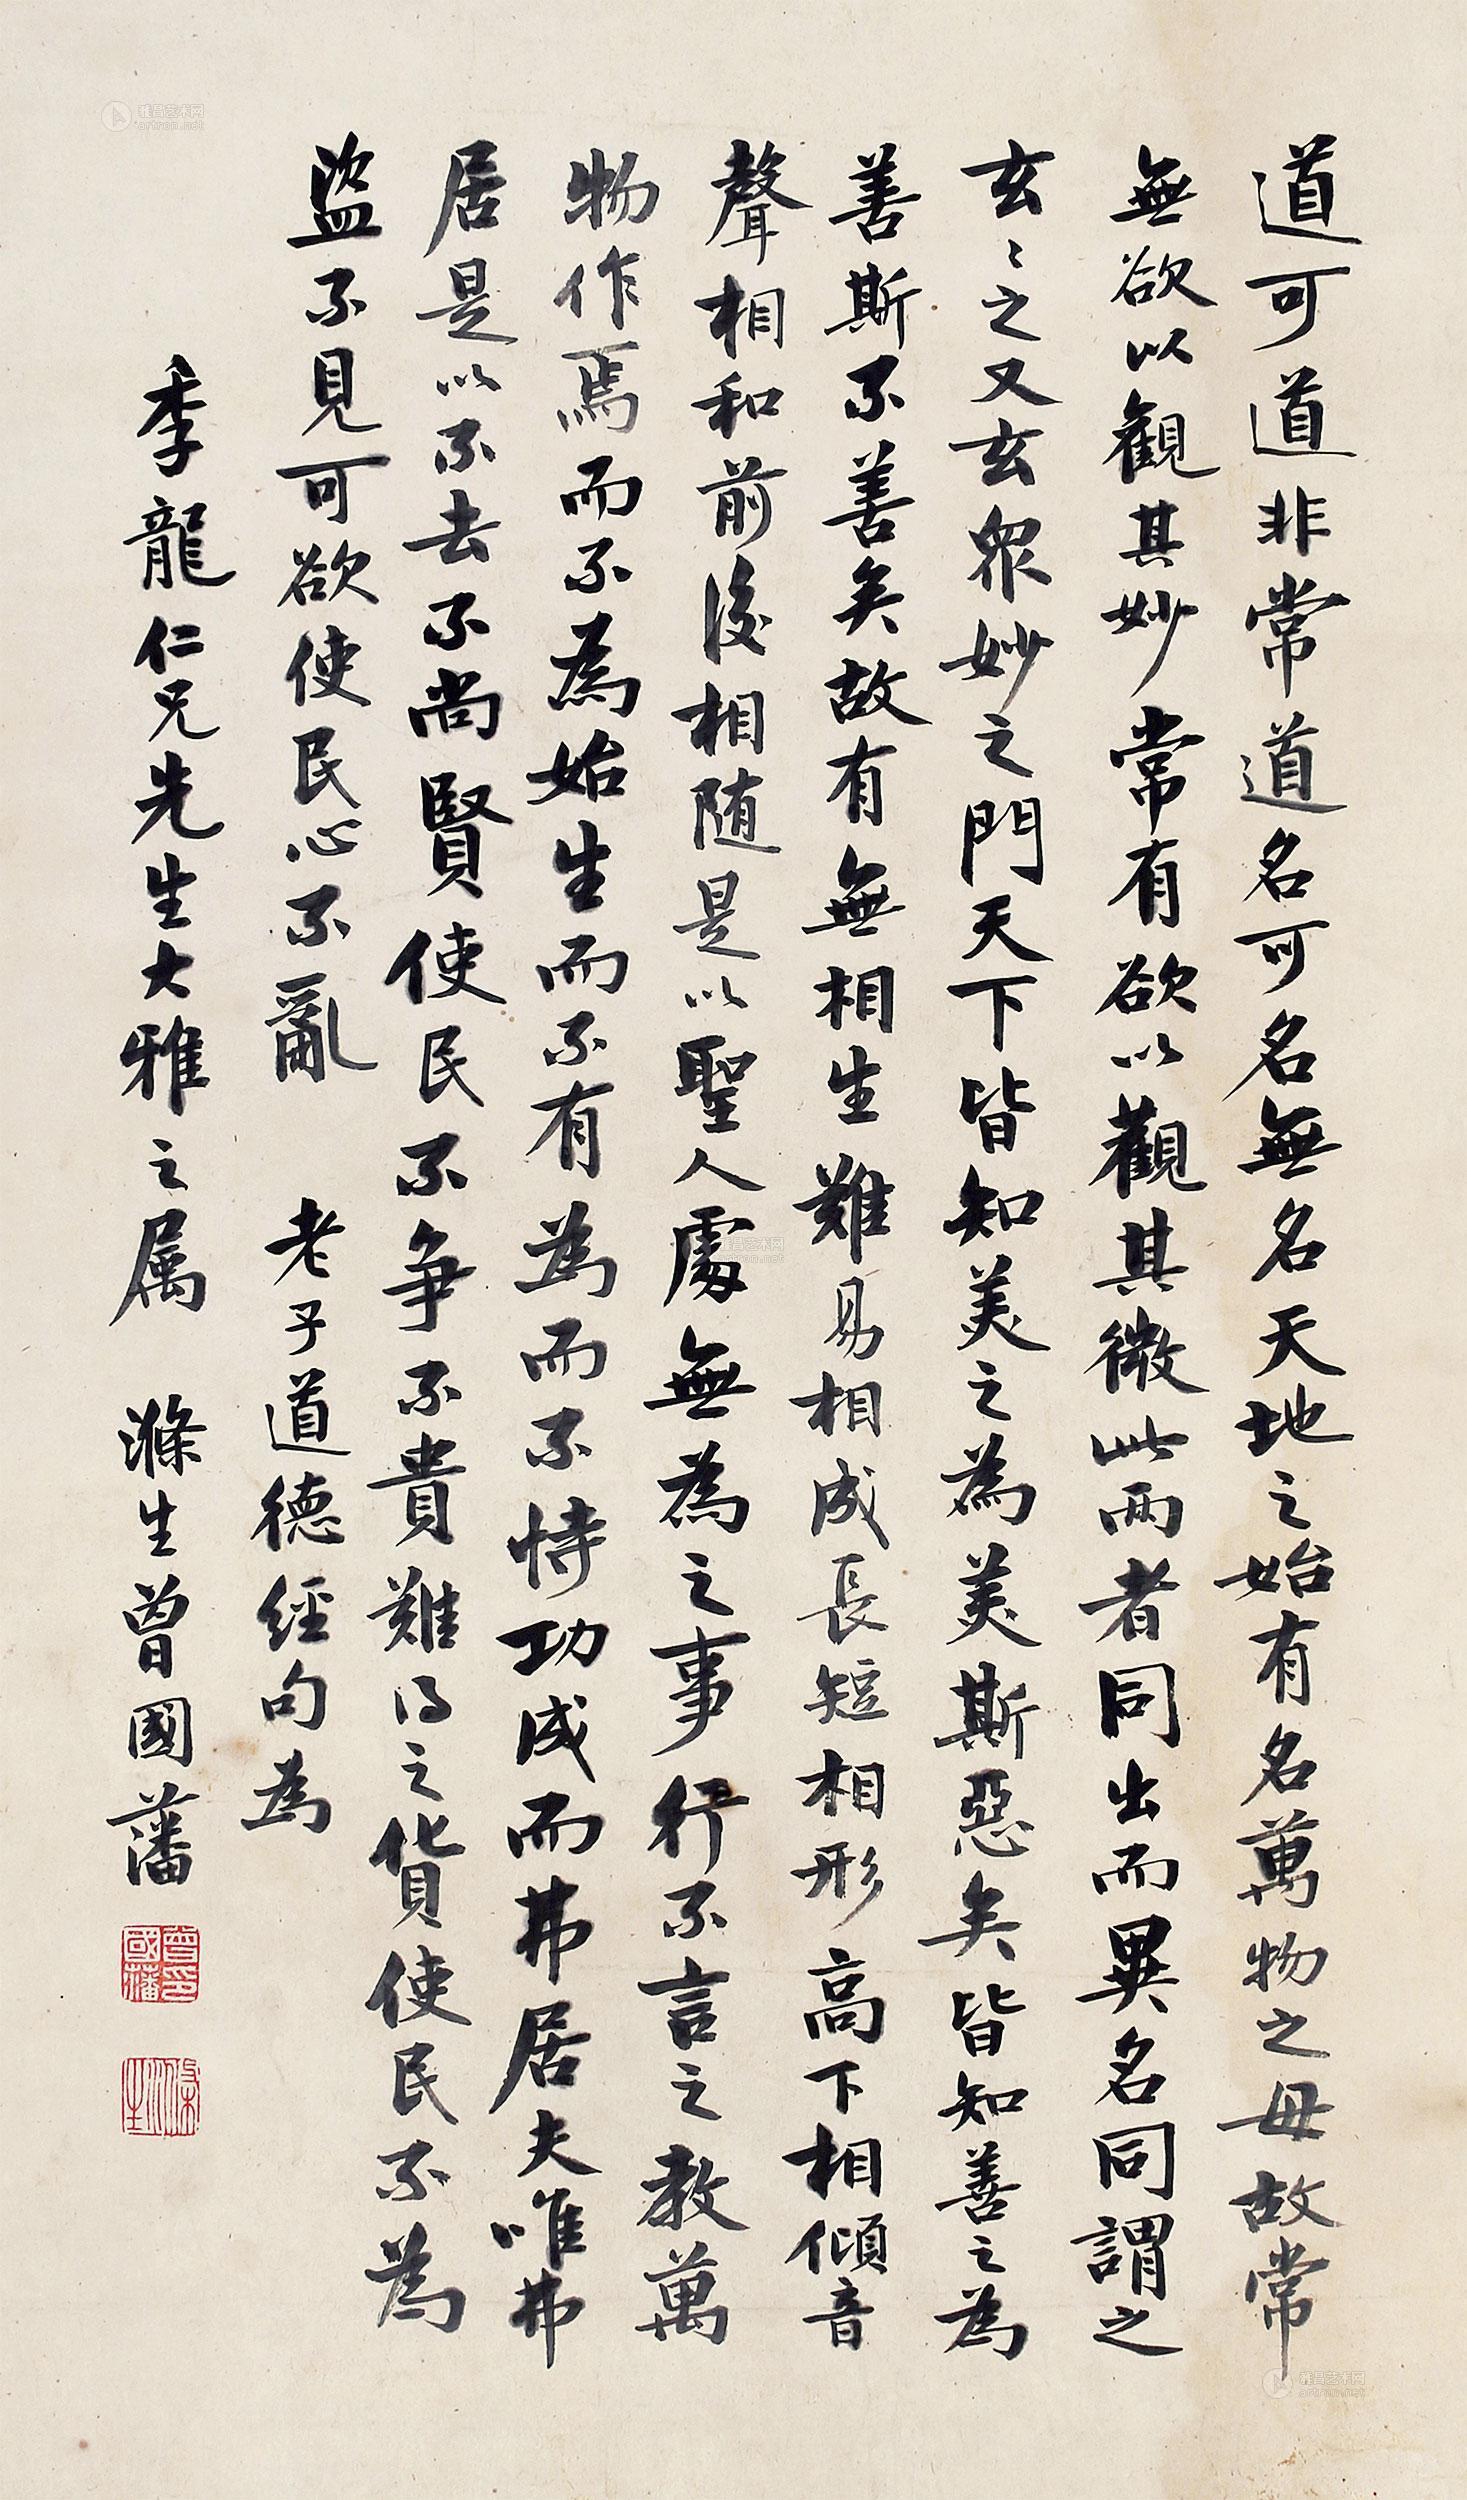 道可道非常道名可名無名天地之始有名萬物之母故常
無欲以觀其妙常有欲以觀其微此兩者同出而異名同謂之
玄〻之又玄眾妙之門天下皆知美之為美斯惡矣皆知善之為
善斯不善矣故有無相生難易相成長短相形高下相傾音
聲相和前後相随是以聖人處無為之事行不言之教萬
物作焉而不為始生而不有為而不恃功成而弗居夫唯弗
居是以不去不尚賢使民不爭不貴難得之貨使民不為
盜不見可欲使民心不亂 老子道德經句為
季龍仁兄先生大雅之属 滌生曾國藩
曾國藩印
滌生
雅昌艺术网
artron.net
雅昌艺术网
artron.net
雅昌艺术网
artron.net